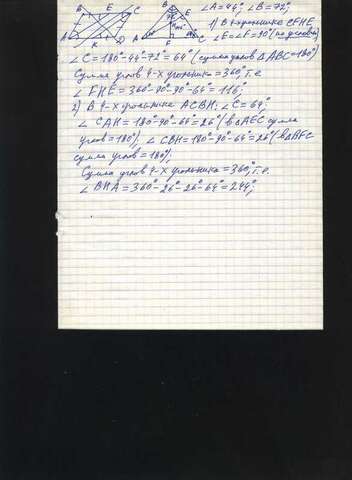 B E C B ∠A=44°; ∠B=72°;
1) В 4-х угольнике CFHE
A K D A F C ∠E=∠F=90° (по условию)
∠C=180°-44°-72°=64° (сумма углов ΔABC=180°)
Сумма углов 4-х угольника=360°, т.е
∠FHE=360°-90°-90°-64°=116°;
2) В 4-х угольнике ACBH; ∠C=64°;
∠CAH=180°-90°-64°=26° (в ΔAEC сумма
углов=180°), ∠CBH=180°-90°-64°=26° (в ΔBFC
сумма углов=180°);
Сумма углов 4-х угольника=360°, т.е.
∠BHA=360°-26°-26°-64°=244°;